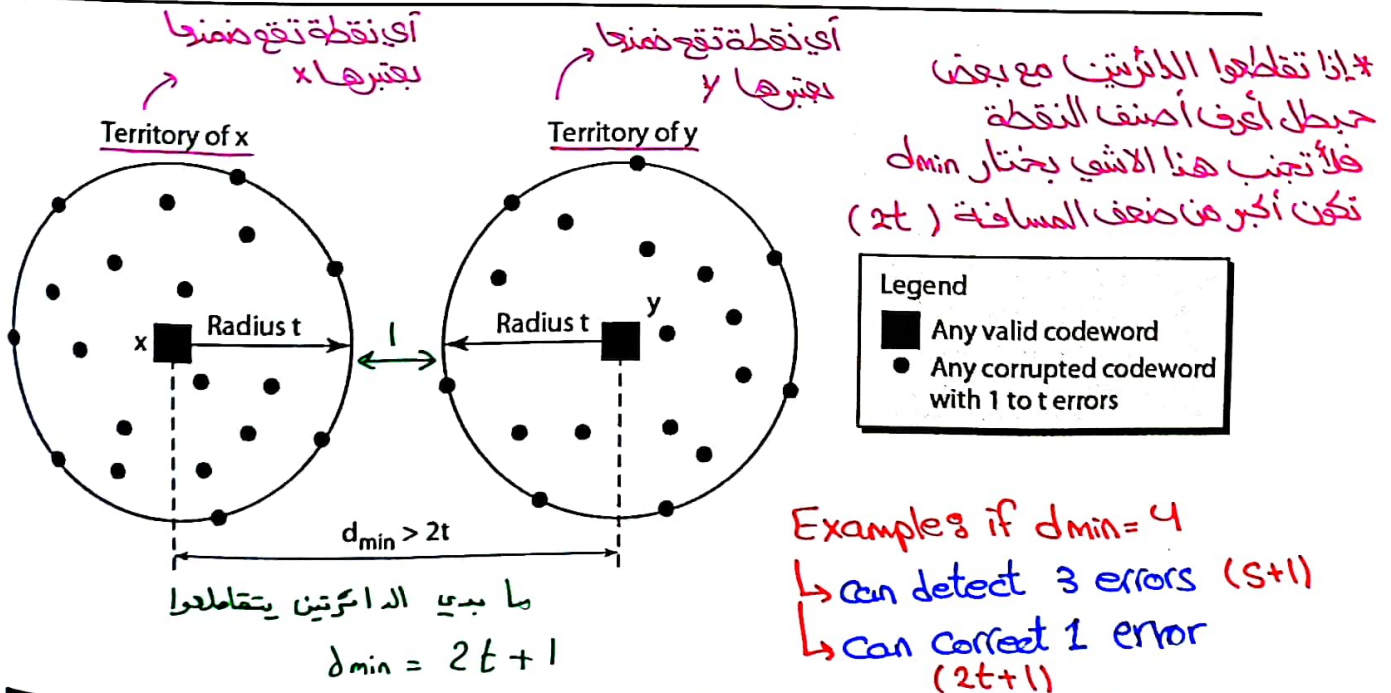 أي نقطة تقع ضمنها
بعتبرها x
أي نقطة تقع ضمنها
بعتبرها y
*إذا تقاطعوا الدائرتين مع بعض
حبطل أعرف أصنف النقطة
فلأتجنب هذا الاشي بختار dmin
تكون أكبر من ضعف المسافة (2t)
Territory of x
Territory of y
Legend
Any valid codeword
Any corrupted codeword
with 1 to t errors
x
Radius t
1
Radius t
y
dmin > 2t
ما بدي الدائرتين يتقاطعوا
dmin = 2t + 1
Examples if dmin = 4
↳ can detect 3 errors (S+1)
↳ can correct 1 error
(2t+1)